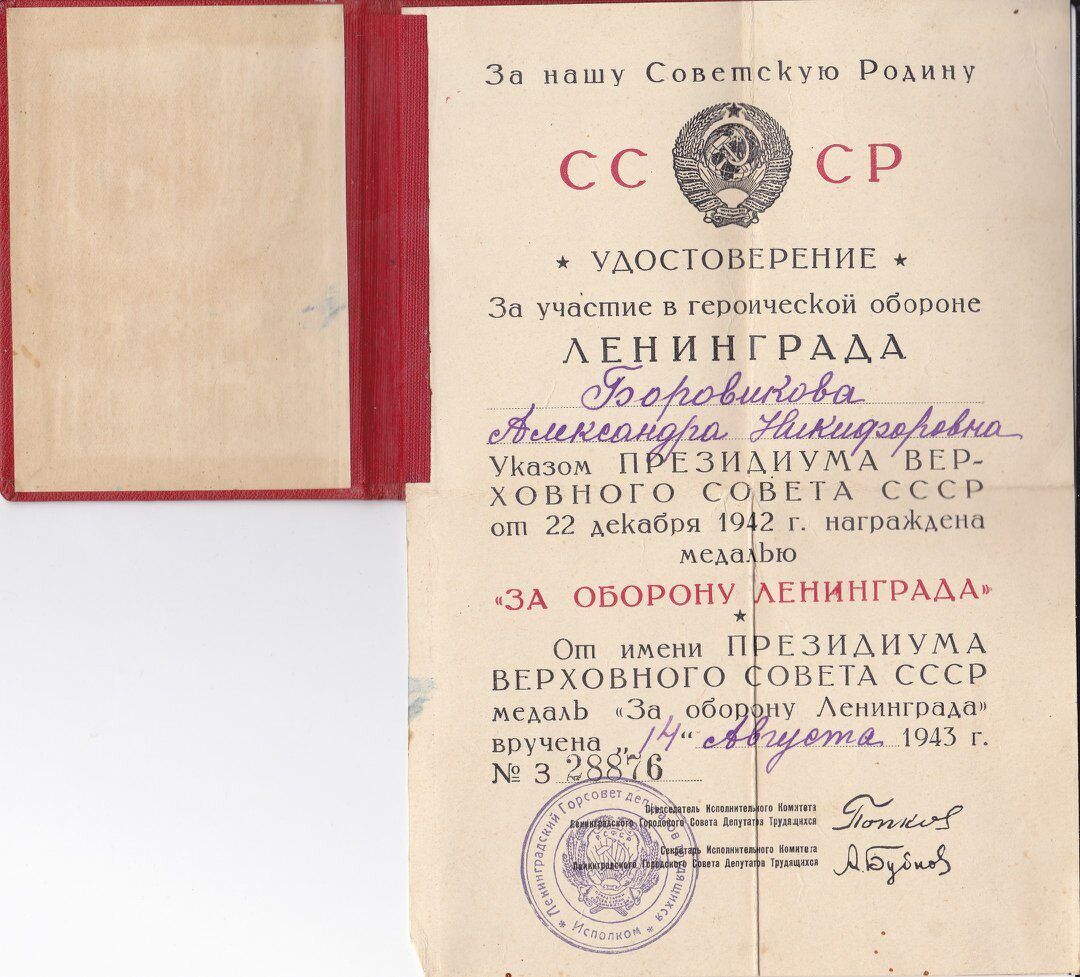 За нашу Советскую Родину
СССР
★ УДОСТОВЕРЕНИЕ ★
За участие в героической обороне
ЛЕНИНГРАДА
Боровикова
Александра Никифоровна
Указом ПРЕЗИДИУМА ВЕР-
ХОВНОГО СОВЕТА СССР
от 22 декабря 1942 г. награждена
медалью
«ЗА ОБОРОНУ ЛЕНИНГРАДА»
★
От имени ПРЕЗИДИУМА
ВЕРХОВНОГО СОВЕТА СССР
медаль «За оборону Ленинграда»
вручена „14“ Августа 1943 г.
№ З 28876
Председатель Исполнительного Комитета
Ленинградского Городского Совета Депутатов Трудящихся
Попков
Секретарь Исполнительного Комитета
Ленинградского Городского Совета Депутатов Трудящихся
А. Бубнов
Ленинградский Горсовет депутатов трудящихся
★ Исполком ★
РСФСР